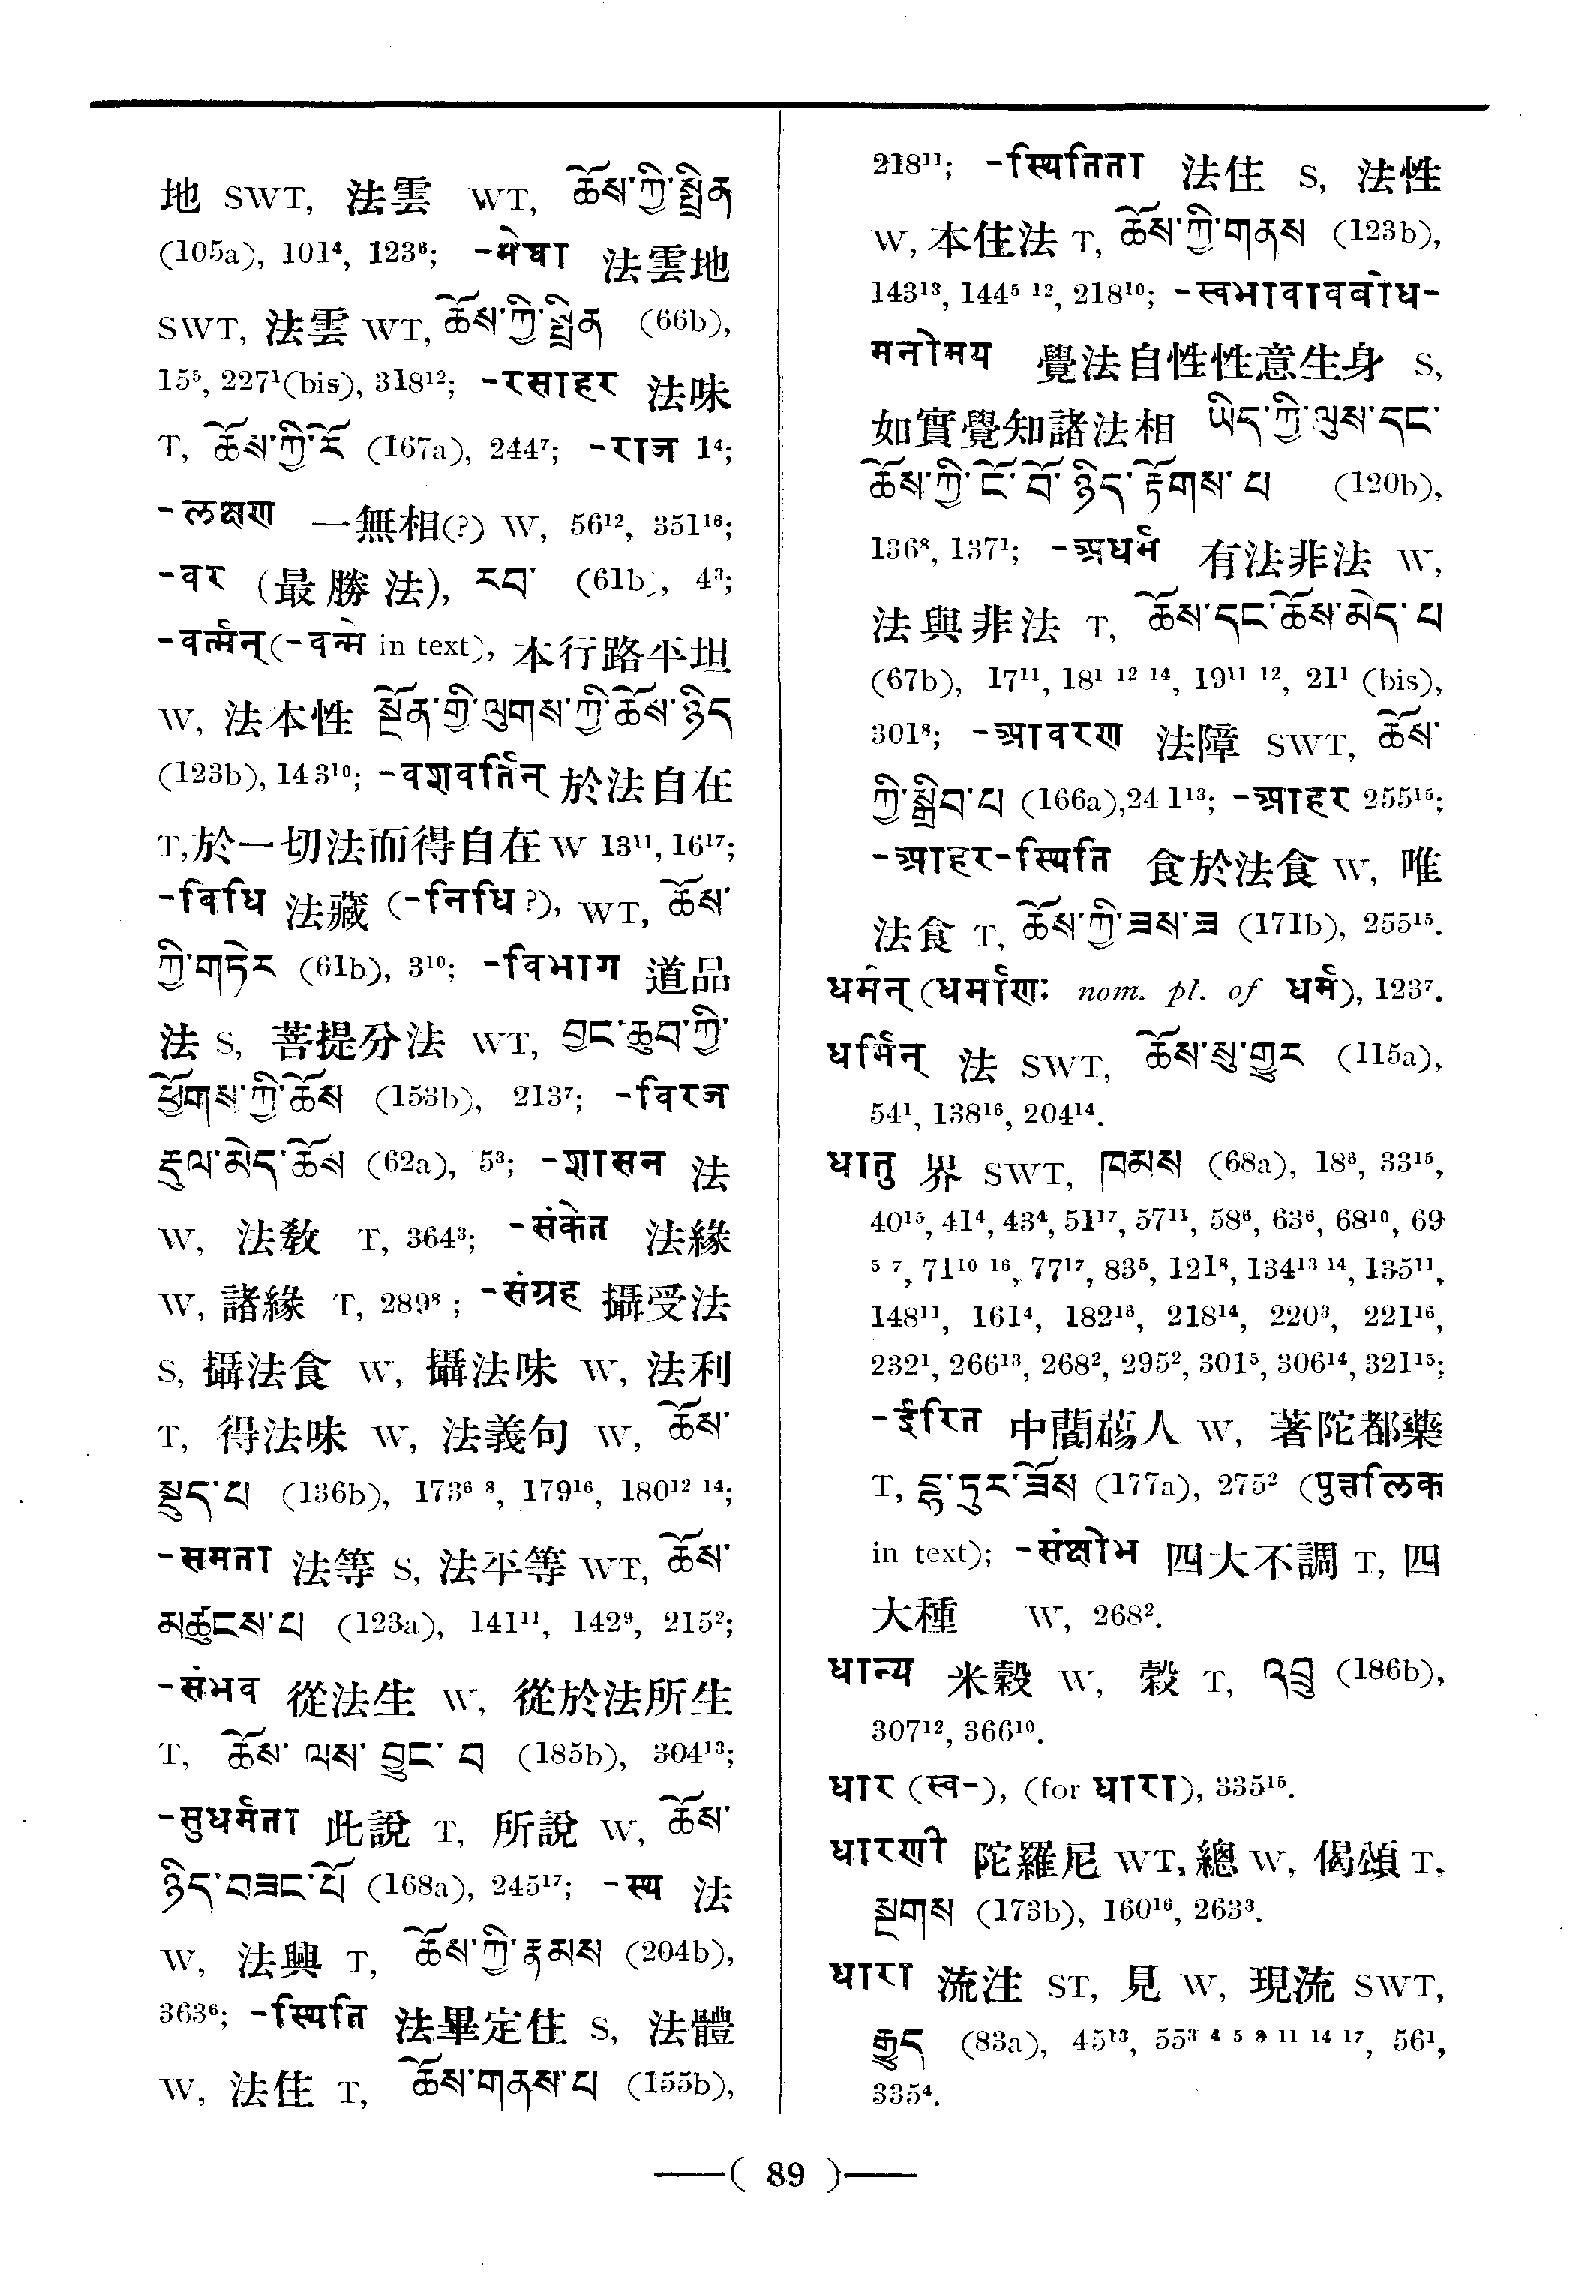 地 SWT, 法雲 WT, ཆོས་ཀྱི་སྤྲིན
(105a), 101⁴, 123⁶; -मेघा 法雲地
SWT, 法雲 WT, ཆོས་ཀྱི་སྤྲིན (66b),
15⁵, 227¹(bis), 318¹²; -रसाहर 法味
T, ཆོས་ཀྱི་རོ (167a), 244⁷; -राज 1⁴;
-लक्षण 一無相(?) W, 56¹², 351¹⁶;
-वर (最勝法), རབ་ (61b), 4³;
-वर्त्मन् (-वन्मे in text), 本行路平坦
W, 法本性 སྔོན་གྱི་ལུགས་ཀྱི་ཆོས་ཉིད
(123b), 143¹⁰; -वशवर्तिन् 於法自在
T, 於一切法而得自在 W 13¹¹, 16¹⁷;
-विधि 法藏 (-निधि ?), WT, ཆོས་
ཀྱི་གཏེར (61b), 3¹⁰; -विभाग 道品
法 S, 菩提分法 WT, བྱང་ཆུབ་ཀྱི་
ཕྱོགས་ཀྱི་ཆོས (153b), 213⁷; -विरज
རྡུལ་མེད་ཆོས (62a), 5³; -शासन 法
W, 法教 T, 364³; -संकेत 法緣
W, 諸緣 T, 289⁸; -संग्रह 攝受法
S, 攝法食 W, 攝法味 W, 法利
T, 得法味 W, 法義句 W, ཆོས་
སྡུད་པ (136b), 173⁶ ⁸, 179¹⁶, 180¹² ¹⁴;
-समता 法等 S, 法平等 WT, ཆོས་
མཚུངས་པ (123a), 141¹¹, 142⁹, 215²;
-संभव 從法生 W, 從於法所生
T, ཆོས་ ལས་ བྱུང་ བ (185b), 304¹³;
-सुधर्मता 此說 T, 所說 W, ཆོས་
ཉིད་བཟང་པོ (168a), 245¹⁷; -स्य 法
W, 法興 T, ཆོས་ཀྱི་རྣམས (204b),
363⁶; -स्थिति 法畢定住 S, 法體
W, 法住 T, ཆོས་གནས་པ (155b),
218¹¹; -स्थितिता 法住 S, 法性
W, 本住法 T, ཆོས་ཀྱི་གནས (123b),
143¹³, 144⁵ ¹², 218¹⁰; -स्वभावावबोध-
मनोमय 覺法自性性意生身 S,
如實覺知諸法相 ཡིད་ཀྱི་ལུས་དང་
ཆོས་ཀྱི་ངོ་བོ་ཉིད་རྟོགས་པ (120b),
136⁸, 137¹; -अधर्म 有法非法 W,
法與非法 T, ཆོས་དང་ཆོས་མེད་པ
(67b), 17¹¹, 18¹ ¹² ¹⁴, 19¹¹ ¹², 21¹ (bis),
301⁸; -आवरण 法障 SWT, ཆོས་
ཀྱི་སྒྲིབ་པ (166a), 241¹³; -आहर 255¹⁵;
-आहर-स्थिति 食於法食 W, 唯
法食 T, ཆོས་ཀྱི་ཟས་ཟ (171b), 255¹⁵.
धर्मन् (धर्माणः nom. pl. of धर्म), 123⁷.
धर्मिन् 法 SWT, ཆོས་སུ་གྱུར (115a),
54¹, 138¹⁶, 204¹⁴.
धातु 界 SWT, ཁམས (68a), 18⁸, 33¹⁵,
40¹⁵, 41⁴, 43⁴, 51¹⁷, 57¹¹, 58⁶, 63⁶, 68¹⁰, 69
⁵ ⁷, 71¹⁰ ¹⁶, 77¹⁷, 83⁵, 121⁸, 134¹³ ¹⁴, 135¹¹,
148¹¹, 161⁴, 182¹⁶, 218¹⁴, 220³, 221¹⁶,
232¹, 266¹³, 268², 295², 301⁵, 306¹⁴, 321¹⁵;
-ईरित 中蘭蕩人 W, 著陀都藥
T, དྷ་དུར་ཟོས (177a), 275² (पुत्तलिक
in text); -संक्षोभ 四大不調 T, 四
大種 W, 268².
धान्य 米穀 W, 穀 T, འབྲུ (186b),
307¹², 366¹⁰.
धार (स्व-), (for धारा), 335¹⁵.
धारणी 陀羅尼 WT, 總 W, 偈頌 T,
སྔགས (173b), 160¹⁶, 263³.
धारा 流注 ST, 見 W, 現流 SWT,
རྒྱུད (83a), 45¹³, 55³ ⁴ ⁵ ⁹ ¹¹ ¹⁴ ¹⁷, 56¹,
335⁴.
( 89 )